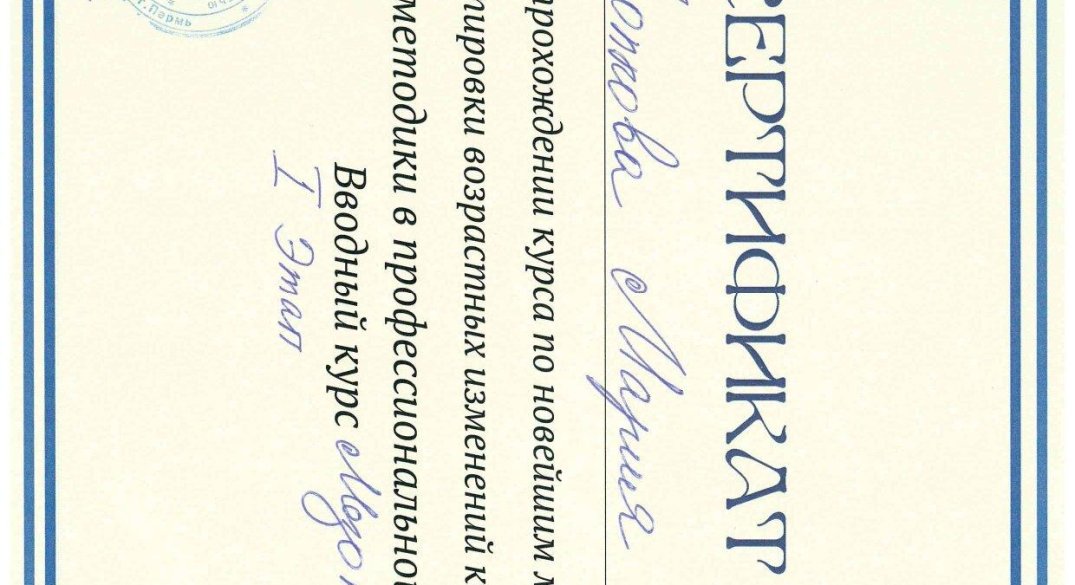 СЕРТИФИКАТ
Мария
прохождении курса по новейшим
тировки возрастных изменений к
методики в профессиональной
Вводный курс
I Этап
г.Пермь